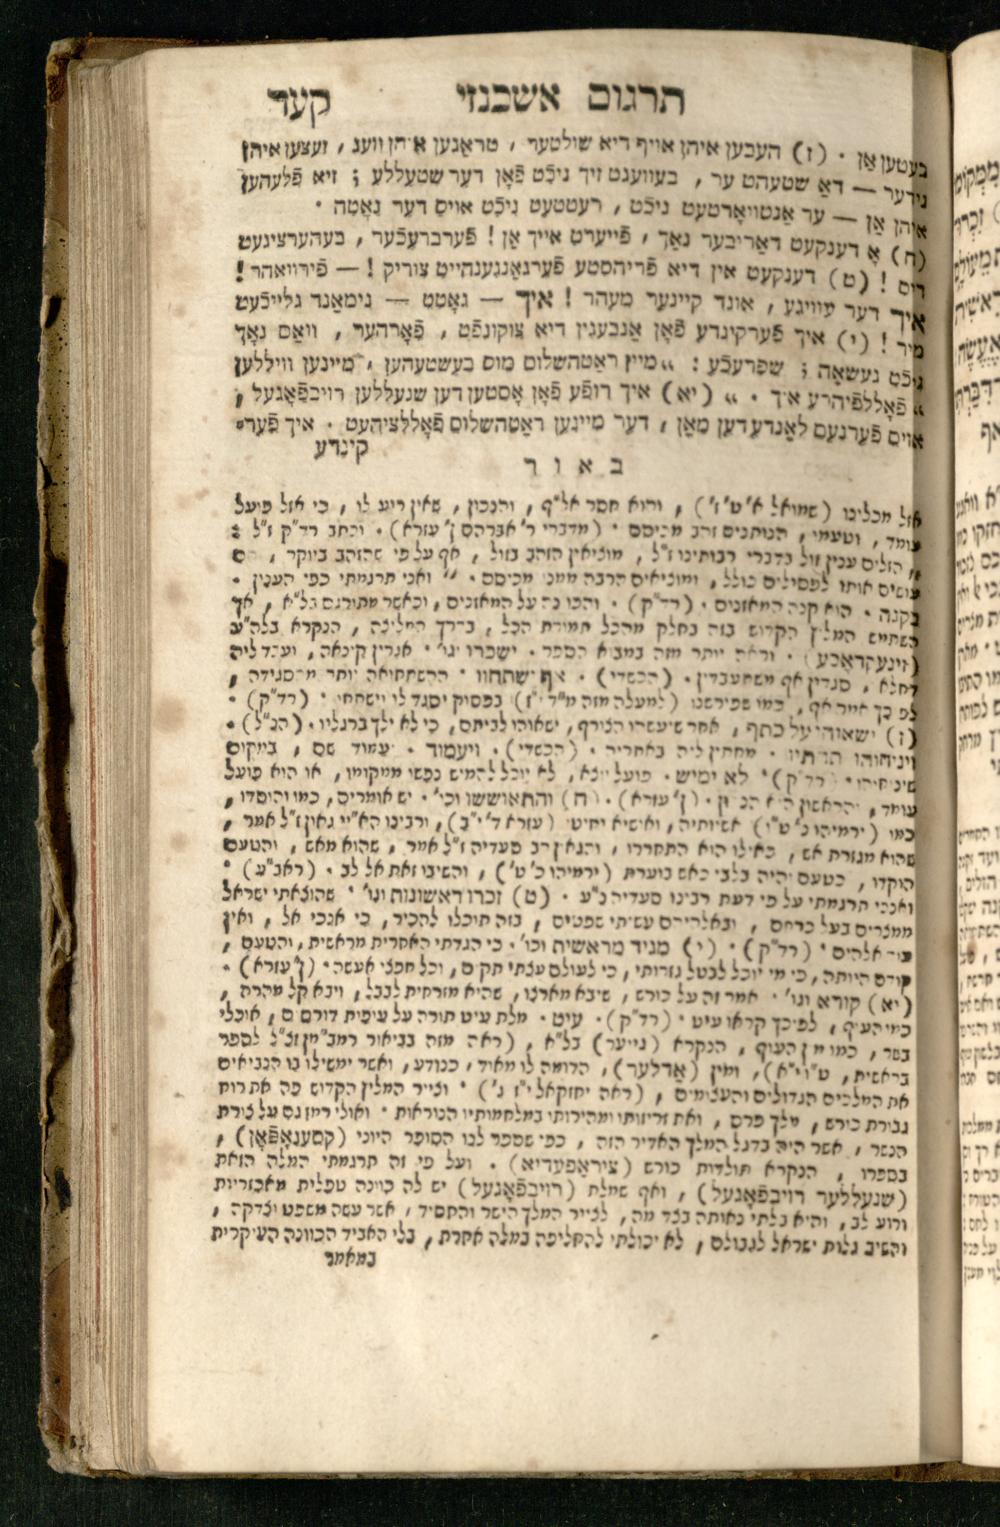 תרגום אשכנזי קעד
בעטען אַן · (ז) העבען איהן אויף דיא שולטער , טראַגען איהן וועג , זעצען איהן
נידער — דאַ שטעהט ער , בעוועגט זיך ניכֿט פֿאָן דער שטעללע ; זיא פֿלעהען
איהן אַן — ער אַנטוואָרטעט ניכֿט , רעטטעט ניכֿט אויס דער נאָטה ·
(ח) אָ דענקעט דאַריבער נאַך , פֿייערט אייך אַן ! פֿערברעכֿער , בעהערציגעט
דיס ! (ט) דענקעט אין דיא פֿריהסטע פֿערגאַנגענהייט צוריק ! — פֿירוואהר !
איך דער עוויגע , אונד קיינער מעהר ! איך — גאָטט — נימאַנד גלייכֿעט
מיר ! (י) איך פֿערקינדע פֿאָן אָנבעגין דיא צוקונפֿט , פֿאָרהער , וואַס נאָך
ניכֿט געשאַה ; שפרעכֿע : „מיין ראַטהשלוס מוס בעשטעהען , מיינען וויללען
„פֿאָללפֿיהרע איך · „ (יא) איך רופֿע פֿאָן אָסטען דען שנעללען רויבפֿאָגעל ,
אויס פֿערנעם לאַנדע דען מאַן , דער מיינען ראַטהשלוס פֿאָללציהעט · איך פֿער־
קינדע
באור
אזל מכלינו (שמואל א' ט' ז') , והוא חסר אל"ף , והנכון , שאין ריע לו , כי אזל פועל
עומד , וטעמו , הנותנים זהב מכיסם · (מדברי ר' אברהם ן' עזרא) · וכתב רד"ק ז"ל :
„ הזלים ענין זול בדברי רבותינו ז"ל , מוציאין הזהב בזול , אף על פי שהזהב ביוקר , הם
עושים אותו לפסילים כולל , ומוציאים הרבה ממנו מכיסם · „ ואני תרגמתי כפי הענין ·
בקנה · הוא קנה המאזנים · (רד"ק) · והכונה על המאזנים , וכאשר מתורגם בל"א , אך
השתמש המליץ הקדוש בזה בחלק מהכל תמורת הכל , בדרך המליצה , הנקרא בלה"ע
(זינעקדאָכע) · וראה יותר מזה במבוא הספר · ישכרו וגו' · אגרין קינאה , ועבד ליה
דחלא , סגדין אף משתעבדין · (הכשדי) · אף ישתחוו · ההשתחואה יותר מהסגידה ,
לפיכך אמר אף , כמו שפירשנו (למעלה מזה מ"ד י"ז) בפסוק יסגד לו וישתחו · (רד"ק) ·
(ז) ישאוהו על כתף , אחר שיעשהו הצורף , ישאוהו לביתם , כי לא ילך ברגליו · (הנ"ל) ·
ויניחוהו תחתיו · מחתין ליה באתריה · (הכשדי) · ויעמוד · יעמוד שם , במקום
שיניחוהו · (רד"ק) · לא ימיש · פועל יוצא , לא יוכל להמיש נפשו ממקומו , או הוא פועל
עומד , והראשון הוא הנכון · (ן' עזרא) · (ח) והתאוששו וכו' · יש אומרים , כמו והוסדו ,
כמו (ירמיהו נ' ט"ו) אשיותיה , ואושיא יחיטו (עזרא ד' י"ב) , ורבינו הא"יי גאון ז"ל אמר ,
שהוא מגזרת אש , כאילו הוא התחררו , והגאון רב סעדיה ז"ל אמר , שהוא מאש , והטעם
הוקדו , כטעם והיה בלבי כאש בוערת (ירמיהו כ' ט') , והשיבו זאת אל לב · (ראב"ע) ·
ואנכי תרגמתי על פי דעת רבינו סעדיה נ"ע · (ט) זכרו ראשונות וגו' · שהוצאתי ישראל
ממצרים בעל כרחם , ובאלהיהם עשיתי שפטים , בזה תוכלו להכיר , כי אנכי אל , ואין
עוד אלהים · (רד"ק) · (י) מגיד מראשית וכו' · כי הגדתי האחרית מראשית , והטעם ,
קודם היותה , כי מי יוכל לבטל גזרותי , כי לעולם עצתי תקום , וכל חפצי אעשה · (ן' עזרא) ·
(יא) קורא וגו' · אמר זה על כורש , שיבא מארצו , שהיא מזרחית לבבל , ויבא קל מהרה ,
כמו העיף , לפיכך קראו עיט · (רד"ק) · עיט · מלת עיט תורה על עופות דורסים , אוכלי
בשר , כמו מין העוף , הנקרא (גייער) בל"א , (ראה מזה בביאור רמב"מן זצ"ל לספר
בראשית , ט"ו י"א) , ומין (אַדלער) , הדומה לו מאוד , כנודע , ואשר ימשילו בו הנביאים
את המלכים הגדולים והעצומים , (ראה יחזקאל י"ז ג') · וצייר המליץ הקדוש פה את רוח
גבורת כורש , מלך פרס , ואת זריזותו ומהירותו במלחמותיו הנוראות · ואולי רמז גם על צורת
הנשר , אשר היה בדגל המלך האדיר הזה , כפי שספר לנו הסופר היוני (קסענאָפֿאָן) ,
בספרו , הנקרא תולדות כורש (ציראָפעדיא) · ועל פי זה תרגמתי המלה הזאת
(שנעללער רויבפֿאָגעל) , ואף שמלת (רויבפֿאָגעל) יש לה כוונה טפלית מאכזריות
ורוע לב , והיא בלתי נאותה בצד מה , לצייר המלך הישר והחסיד , אשר עשה משפט וצדקה ,
והשיב גלות ישראל לגבולם , לא יכולתי להחליפה במלה אחרת , בלי האביד הכוונה העיקרית
במאמר